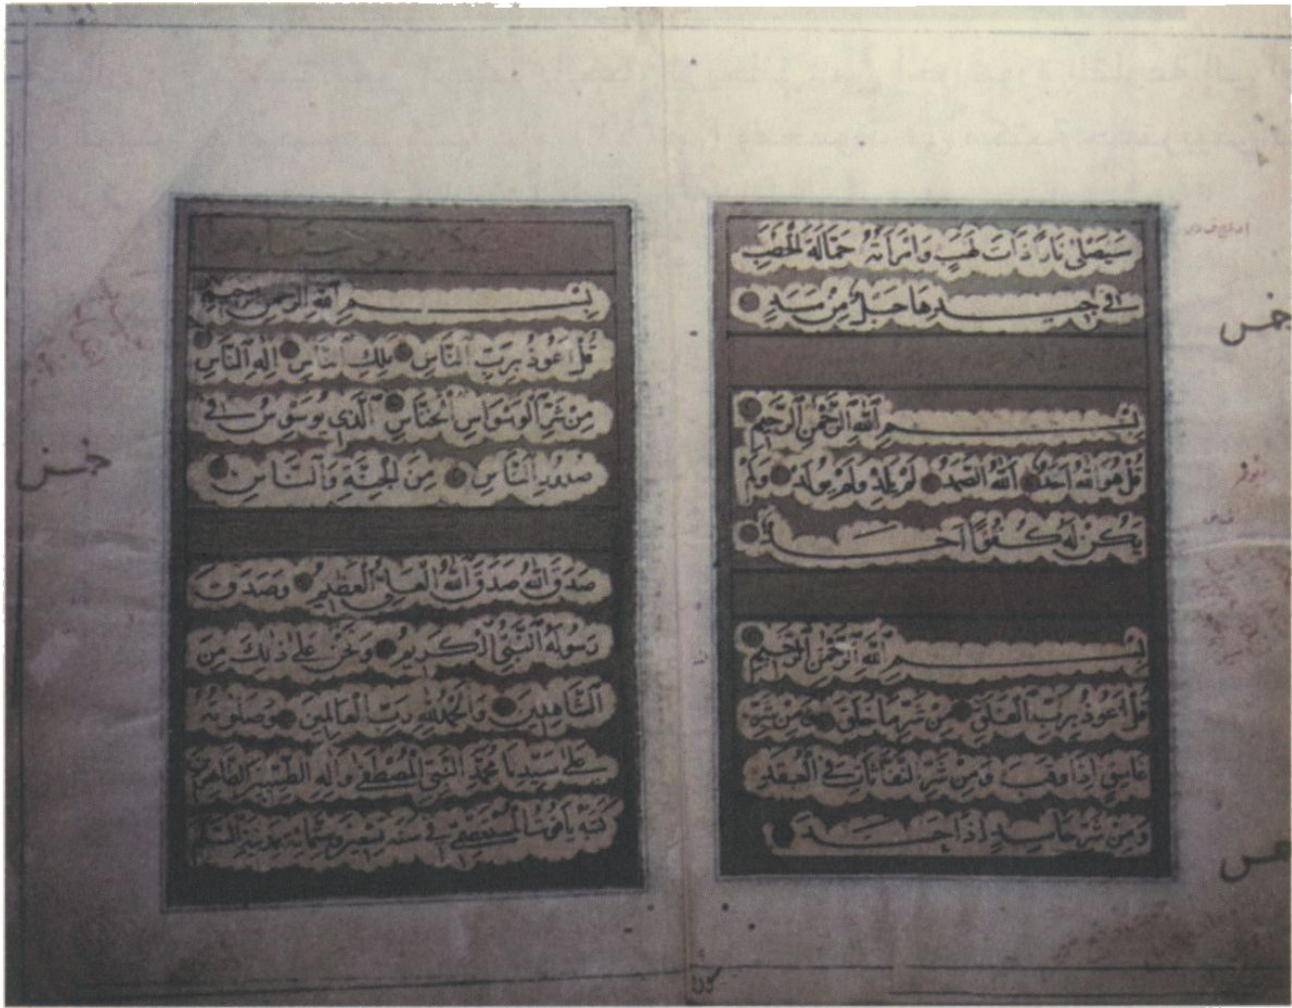 سَيَصْلَىٰ نَارًا ذَاتَ لَهَبٍ وَامْرَأَتُهُ حَمَّالَةَ الْحَطَبِ
فِي جِيدِهَا حَبْلٌ مِنْ مَسَدٍ
بِسْمِ اللهِ الرَّحْمٰنِ الرَّحِيمِ
قُلْ هُوَ اللهُ أَحَدٌ اللهُ الصَّمَدُ لَمْ يَلِدْ وَلَمْ يُولَدْ وَلَمْ
يَكُنْ لَهُ كُفُوًا أَحَدٌ
بِسْمِ اللهِ الرَّحْمٰنِ الرَّحِيمِ
قُلْ أَعُوذُ بِرَبِّ الْفَلَقِ مِنْ شَرِّ مَا خَلَقَ وَمِنْ شَرِّ
غَاسِقٍ إِذَا وَقَبَ وَمِنْ شَرِّ النَّفَّاثَاتِ فِي الْعُقَدِ
وَمِنْ شَرِّ حَاسِدٍ إِذَا حَسَدَ
بِسْمِ اللهِ الرَّحْمٰنِ الرَّحِيمِ
قُلْ أَعُوذُ بِرَبِّ النَّاسِ مَلِكِ النَّاسِ إِلٰهِ النَّاسِ
مِنْ شَرِّ الْوَسْوَاسِ الْخَنَّاسِ الَّذِي يُوَسْوِسُ فِي
صُدُورِ النَّاسِ مِنَ الْجِنَّةِ وَالنَّاسِ
صَدَقَ اللهُ صَدَقَ اللهُ الْعَلِيُّ الْعَظِيمُ وَصَدَقَ
رَسُولُهُ النَّبِيُّ الْكَرِيمُ وَنَحْنُ عَلَىٰ ذٰلِكَ مِنَ
الشَّاهِدِينَ وَالْحَمْدُ لِلهِ رَبِّ الْعَالَمِينَ وَصَلَوَاتُهُ
عَلَىٰ سَيِّدِنَا مُحَمَّدٍ النَّبِيِّ الْمُصْطَفَىٰ وَآلِهِ الطَّيِّبِينَ الطَّاهِرِينَ
كتبه ياقوت المستعصمي في سنة تسعين وستمائة بمدينة السلام